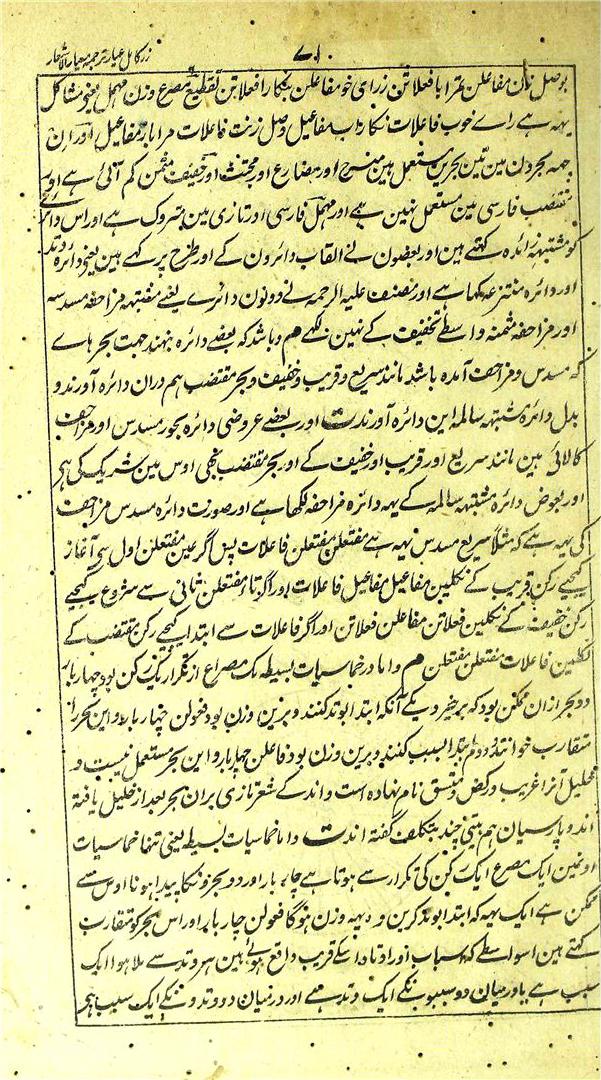 زر کامل عیار ترجمہ معیار الاشعار
۷۱
بوصل نان مفاعلن مرا با فعلاتن زرای خو مفاعلن بنکار فعلاتن تقطیع مصرع وزن مہمل یعنے مشاکل
یہہ ہے راے خوب فاعلات نکار تاب مفاعیل وصل زنت فاعلات مرا باز مفاعیل اور ان
جمہ بحر دن مین تین بحرین مستعمل ہین منسرح اور مضارع اور مجتث اور خفیف مثمن کم آئی ہے اور
مقتضب فارسی مین مستعمل نہین ہے اور مہمل فارسی اور تازی مین متروک ہے اور اس دائرے
کو مشتبہہ زائدہ کہتے ہین اور بعضون نے القاب دائرون کے اور طرح پر کہے ہین یعنے دائرہ وتد
اور دائرہ منتزعہ کہا ہے اور مصنف علیہ الرحمہ نے دونون دائرے یعنے مشتبہہ مزاحفہ مسدسہ
اور مزاحفہ مثمنہ واسطے تخفیف کے نہین لکھے هم و باشد کہ بعضے دائرہ نہند جہت بحر ہاے
کہ مسدس و مزاحف آمدہ باشد مانند سریع و قریب و خفیف و بحر مقتضب ہم دران دائرہ آورند و
بدل دائرۂ مشتبہہ سالمہ این دائرہ آورند ت اور بعضے عروضی دائرہ بحور مسدس اور مزاحف
کا لائی ہین مانند سریع اور قریب اور خفیف کے اور بحر مقتضب بھی اوس مین شریک کی ہی
اور بعوض دائرہ مشتبہہ سالمہ کے یہہ دائرہ مزاحفہ لکھا ہے اور صورت دائرہ مسدس مزاحف
کی یہہ ہے کہ مثلاً سریع مسدس یہہ ہے مفتعلن مفتعلن فاعلات پس اگر عین مفتعلن اول سے آغاز
کیجیے رکن قریب کے نکلین مفاعیل مفاعیل فاعلات اور اگر تاے مفتعلن ثانی سے شروع کیجیے
رکن خفیف کے نکلین فعلاتن مفاعلن فعلاتن اور اگر فاعلات سے ابتدا کیجیے رکن مقتضب کے
نکلین فاعلات مفتعلن مفتعلن هم و اما در خماسیات بسیطہ یک مصراع از تکرار یک رکن بود چہار بار
و دو بحر ازان ممکن بود کہ برخیزد یکے آنکہ ابتدا بوتد کنند و برین وزن بود فعولن چہار بار و این بحر را
متقارب خوانند و دوم ابتدا بسبب کنند و برین وزن بود فاعلن چہار بار و این بحر مستعمل نیست و
خلیل آنرا غریب و رکض و متسق نام نہادہ است و اند کے شعر تازی بران بحر بعد از خلیل یافتہ
اند و پارسیان ہم بیتی چند بتکلف گفتہ اند ت و اما خماسیات بسیط یعنی تنہا خماسیات
اونمین ایک مصرع ایک رکن کی تکرار سے ہوتا ہے چار بار اور دو بحرونکا پیدا ہونا اوس سے
ممکن ہے ایک یہہ کہ ابتدا بوتد کرین و یہہ وزن ہوگا فعولن چار بار اور اس بحر کو متقارب
کہتے ہین اسواسطے کہ اسباب اور اوتاد اسکے قریب واقع ہوئے ہین ہر وتد سے ملا ہوا ایک
سبب ہے یا درمیان دو سببونکے ایک وتد ہے اور درمیان دو وتدونکے ایک سبب ہی